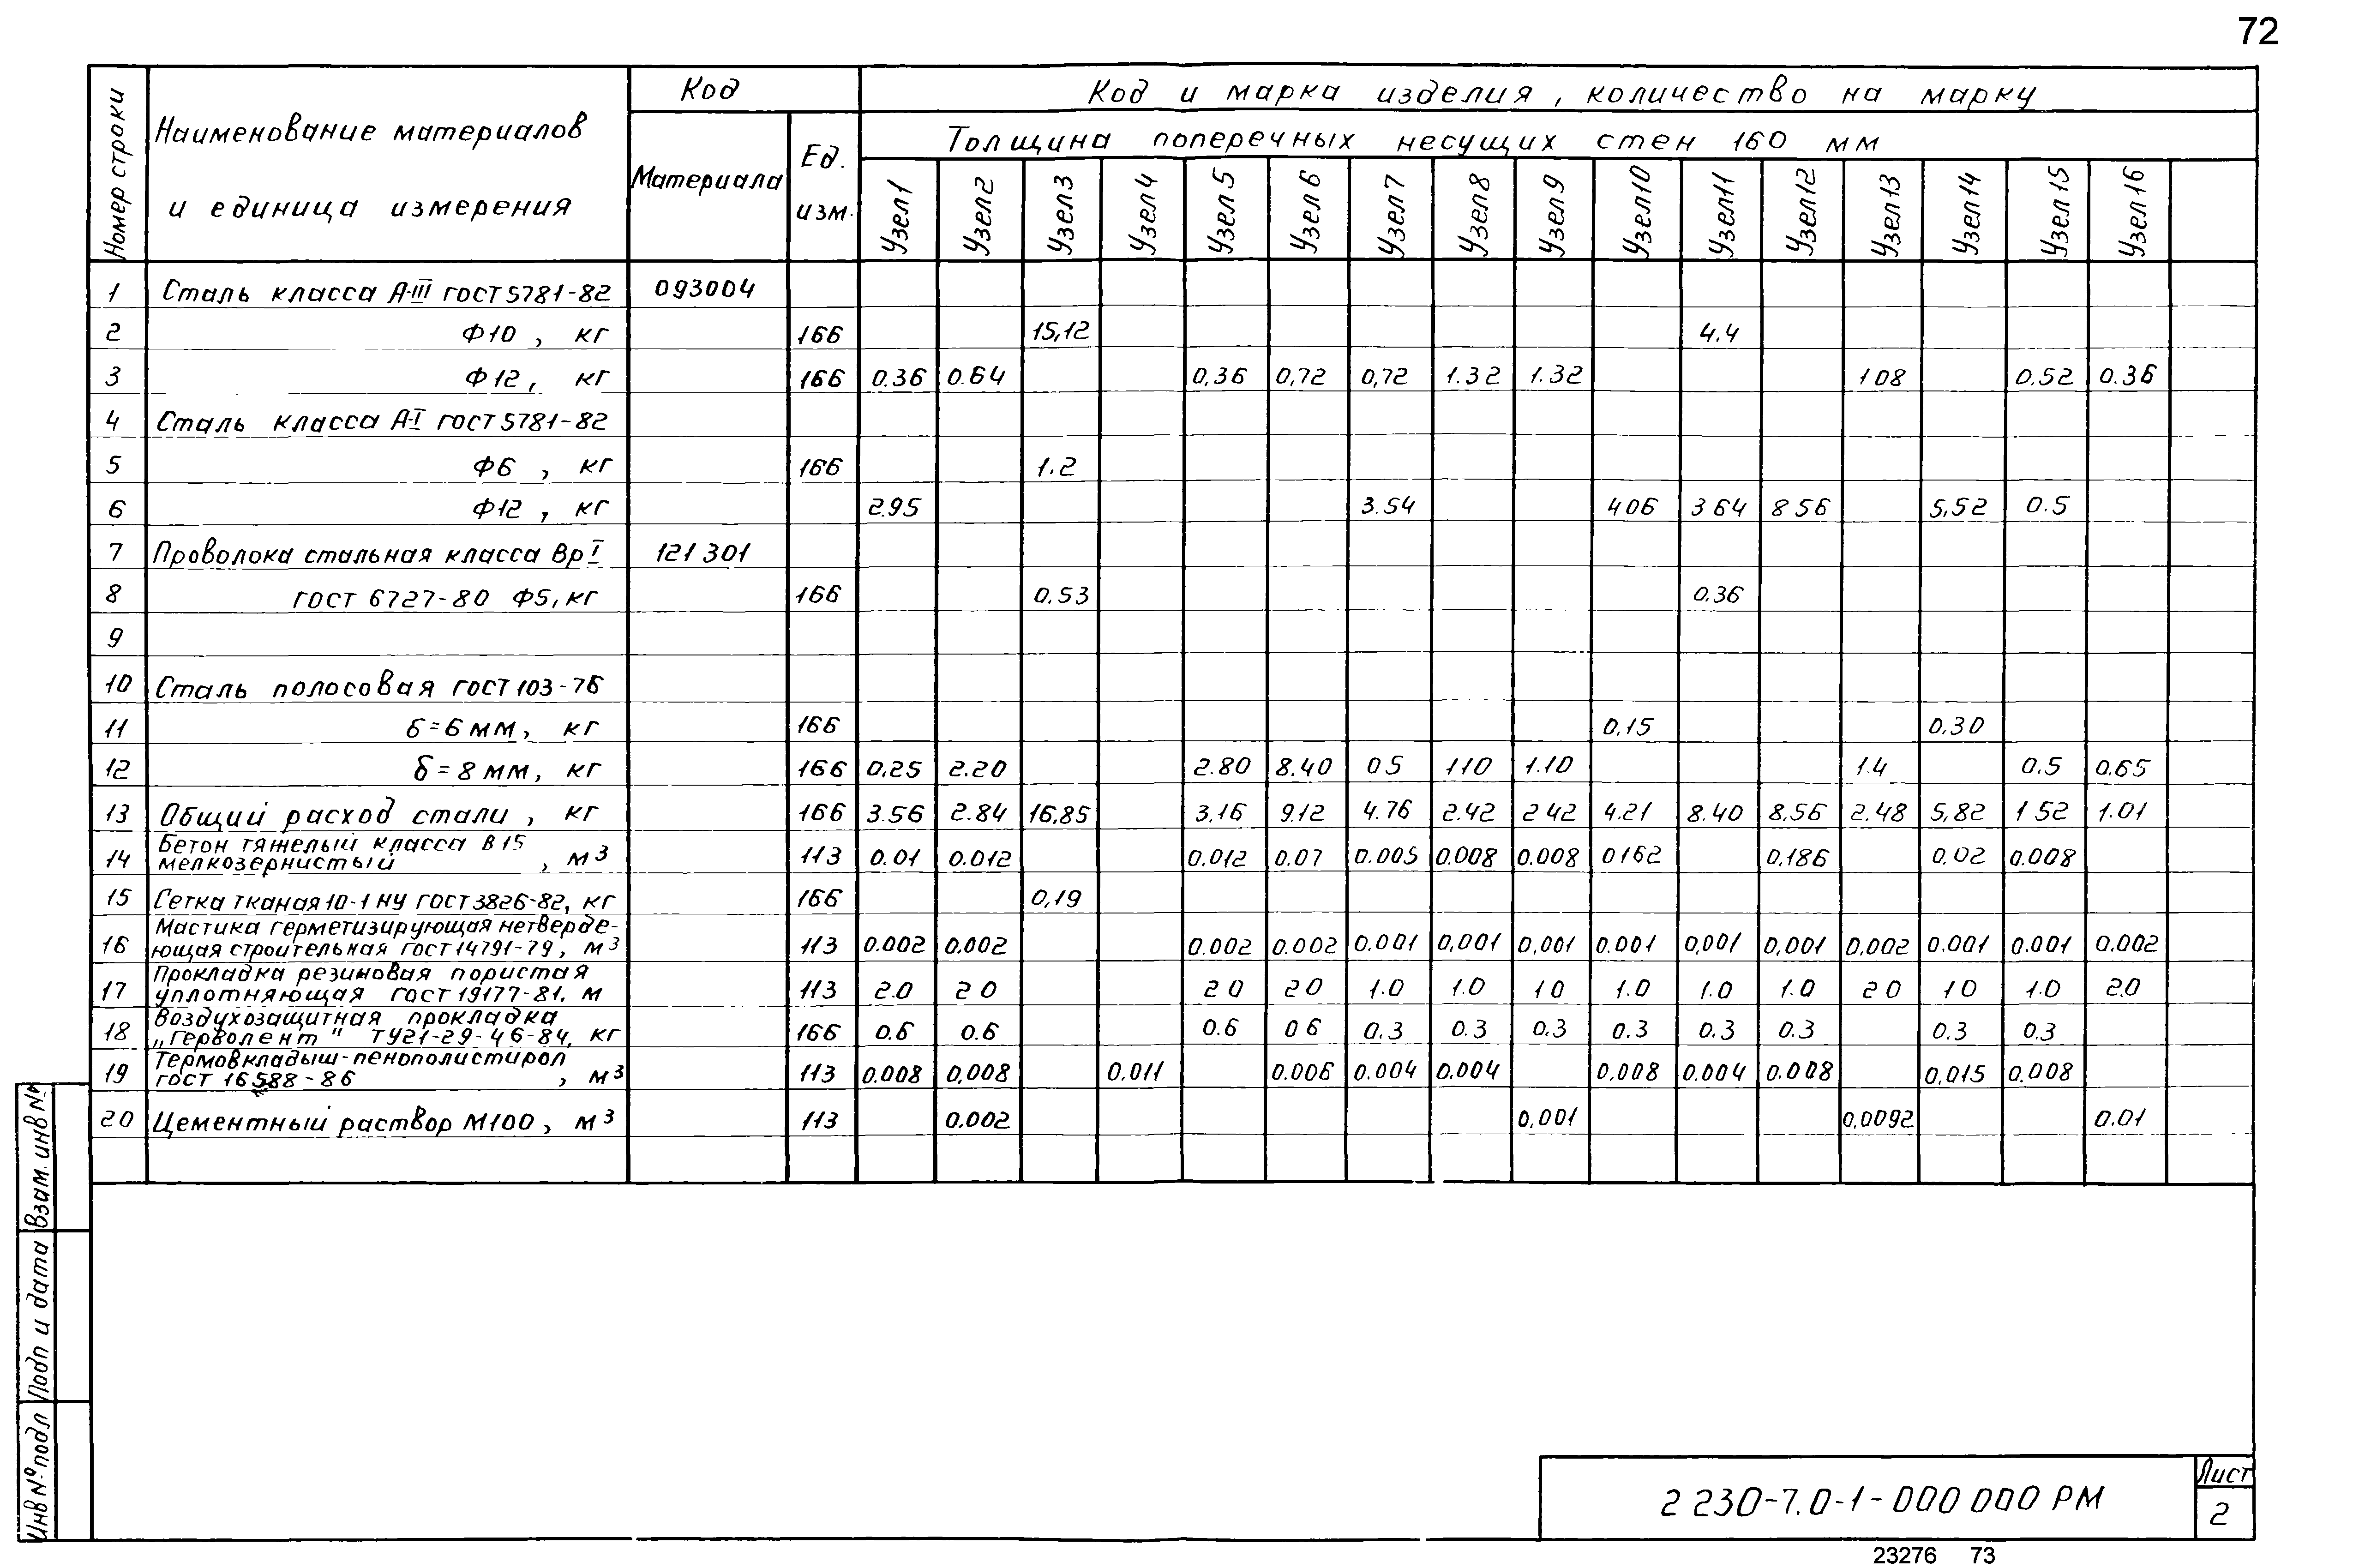 72
Номер строки
Наименование материалов
и единица измерения
Код
Материала
Ед.
изм.
Код и марка изделия, количество на марку
Толщина поперечных несущих стен 160 мм
Узел 1 Узел 2 Узел 3 Узел 4 Узел 5 Узел 6 Узел 7 Узел 8 Узел 9 Узел 10 Узел 11 Узел 12 Узел 13 Узел 14 Узел 15 Узел 16
1 Сталь класса А-III ГОСТ 5781-82 093004
2 Ф10, кг 166 15,12 4.4
3 Ф12, кг 166 0.36 0.64 0,36 0,72 0,72 1.32 1.32 108 0.52 0.36
4 Сталь класса А-I ГОСТ 5781-82
5 Ф6, кг 166 1.2
6 Ф12, кг 2.95 3.54 406 3 64 8 56 5,52 0.5
7 Проволока стальная класса Вр I 121 301
8 ГОСТ 6727-80 Ф5, кг 166 0,53 0.36
9
10 Сталь полосовая ГОСТ 103-76
11 δ=6 мм, кг 166 0,15 0.30
12 δ=8 мм, кг 166 0,25 2.20 2.80 8.40 05 110 1.10 1.4 0.5 0.65
13 Общий расход стали, кг 166 3.56 2.84 16,85 3,16 9.12 4.76 2.42 2 42 4.21 8.40 8,56 2.48 5,82 1 52 1.01
14 Бетон тяжелый класса В15
мелкозернистый, м3 113 0.01 0.012 0.012 0.07 0.005 0.008 0.008 0162 0,186 0.02 0.008
15 Сетка тканая 10-1 НУ ГОСТ 3826-82, кг 166 0,19
16 Мастика герметизирующая нетверде-
ющая строительная ГОСТ 14791-79, м3 113 0.002 0,002 0.002 0.002 0.001 0,001 0,001 0.001 0,001 0,001 0,002 0.001 0.001 0.002
17 Прокладка резиновая пористая
уплотняющая ГОСТ 19177-81, м 113 2.0 2 0 2 0 2 0 1.0 1.0 1 0 1.0 1.0 1.0 2 0 1 0 1.0 2.0
18 Воздухозащитная прокладка
„Герволент" ТУ21-29-46-84, кг 166 0.6 0.6 0.6 0 6 0.3 0.3 0.3 0.3 0.3 0.3 0.3 0.3
19 Термовкладыш-пенополистирол
ГОСТ 16588-86, м3 113 0.008 0,008 0.011 0.006 0.004 0.004 0,008 0.004 0.008 0,015 0.008
20 Цементный раствор М100, м3 113 0.002 0,001 0,0092 0.01
Взам. инв №
Подп и дата
Инв № подл
2 230-7.0-1-000 000 РМ
Лист
2
23276 73